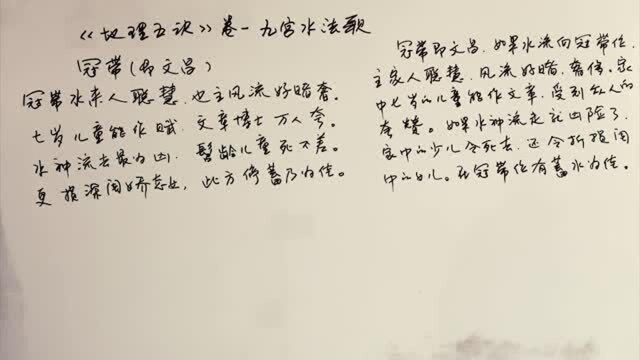 《地理五诀》卷一九宫水法歌
冠带(即文昌)
冠带水来人聪慧，也主风流好赌奢。
七岁儿童能作赋，文章博士万人夸。
水神流去最为凶，髫龄儿童死不差。
更损深闺娇态女，此方停蓄乃为佳。
冠带即文昌，如果水流向冠带位，
主家人聪慧，风流好赌，奢侈。家
中七岁的儿童能作文章，受到别人的
夸赞。如果水神流走就凶险了，
家中的少儿会死去，还会折损闺
中的女儿。在冠带位有蓄水为佳。